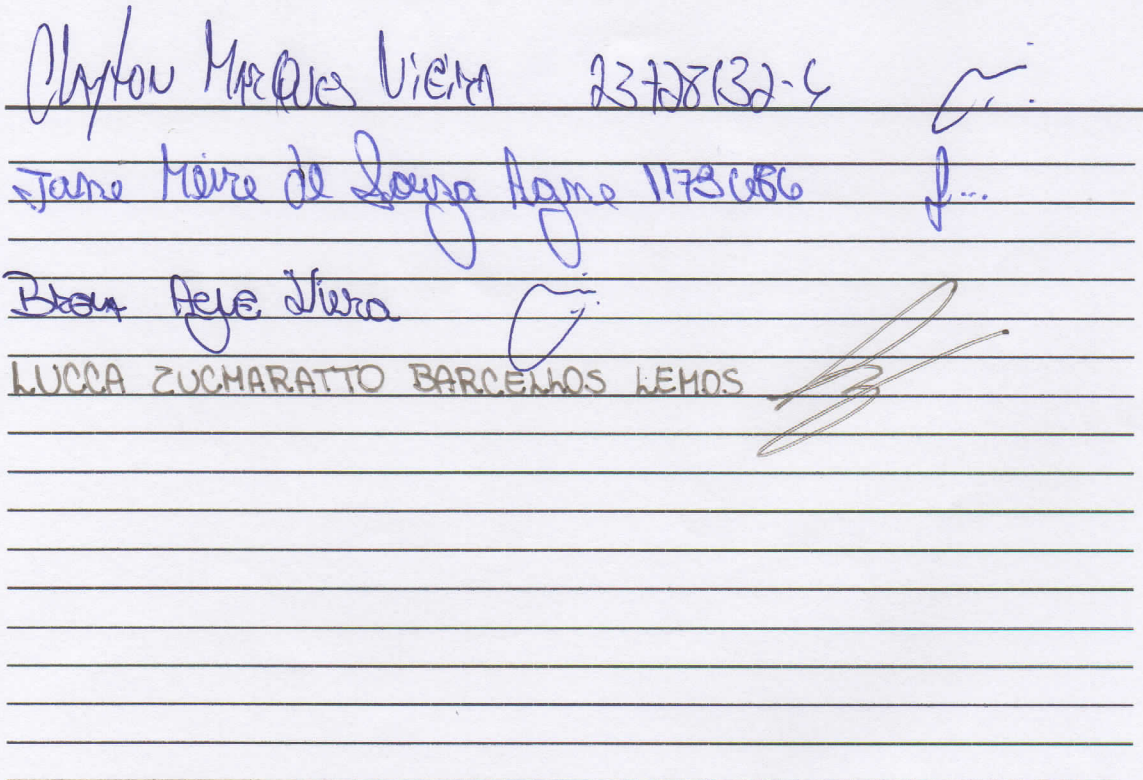 Clayton Marques Vieira 23728132-4
Jane Meire de Souza Agne
Vieira
LUCCA ZUCHARATTO BARCELLOS LEMOS